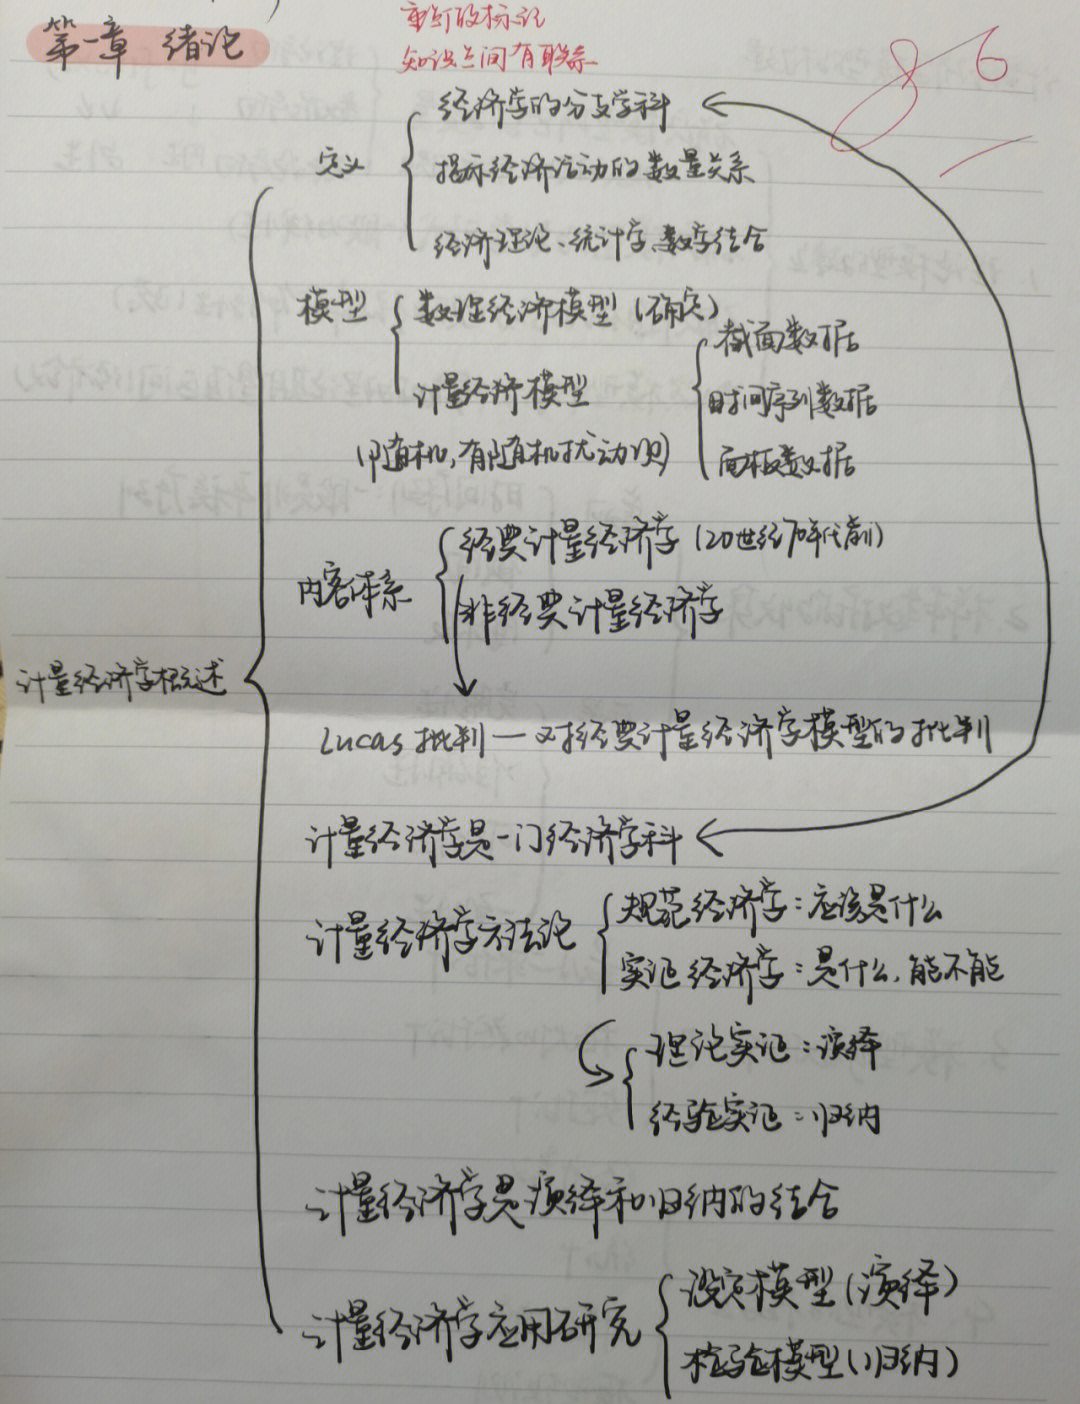 第一章 绪论
重点的标记
知识点间有联系
86
经济学的分支学科
定义
揭示经济活动的数量关系
经济理论、统计学、数学结合
模型
数理经济模型(确定)
截面数据
计量经济模型
时间序列数据
(即随机,有随机扰动项)
面板数据
经典计量经济学(20世纪70年代前)
内容体系
非经典计量经济学
计量经济学概述
Lucas批判—对经典计量经济学模型的批判
计量经济学是一门经济学科
规范经济学:应该是什么
计量经济学方法论
实证经济学:是什么,能不能
理论实证:演绎
经验实证:归纳
计量经济学是演绎和归纳的结合
设定模型(演绎)
计量经济学应用研究
检验模型(归纳)